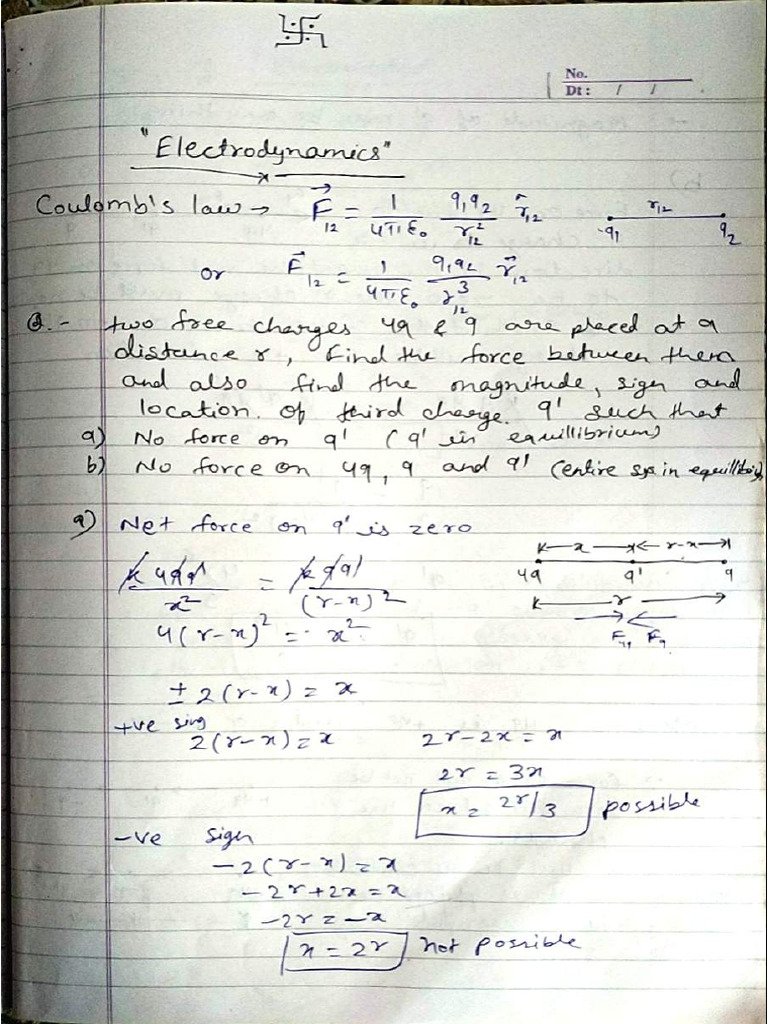 No.
Dt: / /
"Electrodynamics"
Coulomb's law → F⃗₁₂ = 1/4πε₀ q₁q₂/r₁₂² r̂₁₂
r₁₂
q₁ q₂
or F⃗₁₂ = 1/4πε₀ q₁q₂/r₁₂³ r⃗₁₂
Q.- two free charges 4q & q are placed at a
distance r, Find the force between them
and also find the magnitude, sign and
location. of third charge. q' such that
a) No force on q' (q' in equillibrium)
b) No force on 4q, q and q' (entire sys in equillibrium)
a) Net force on q' is zero
x r-x
4q q' q
r
k4qq'/x² = kqq'/(r-x)²
F₄q Fq
4(r-x)² = x²
± 2(r-x) = x
+ve sing
2(r-x) = x 2r-2x = x
2r = 3x
x = 2r/3 possible
-ve sign
-2(r-x) = x
-2r+2x = x
-2r = -x
x = 2r not possible